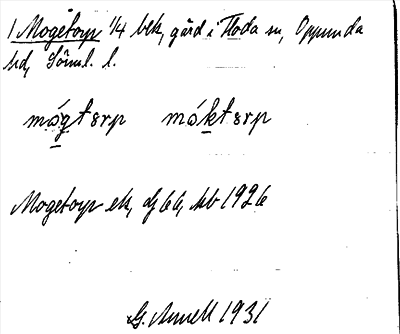 1 Mogetorp 1/4 bek, gård i Floda sn, Oppunda
hd, Söml. l.
mógtsrp móktsrp
Mogetorp ek, 1926
G. Annell 1931